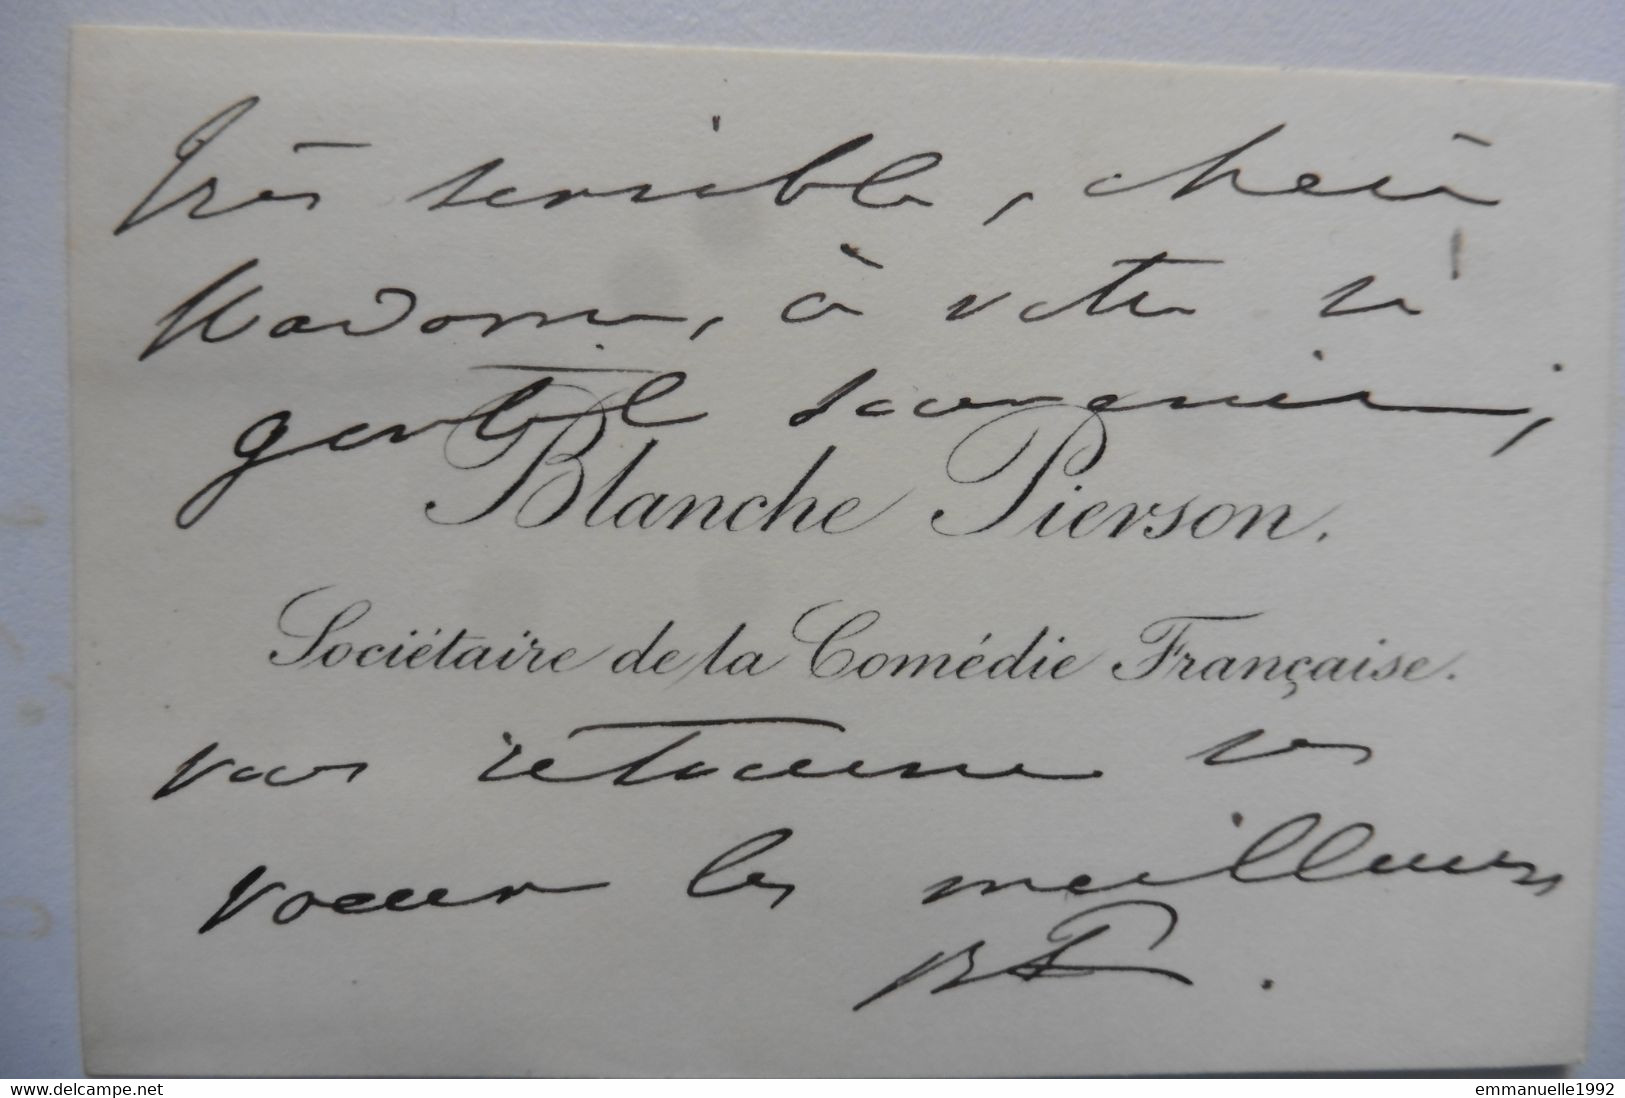 Très sensible, chère
Madame, à votre si
gentil souvenir,
Blanche Pierson.
Sociétaïre de la Comédie Française.
vous retourne ses
voeux les meilleurs
BP.
delcampe.net
emmanuelle1992